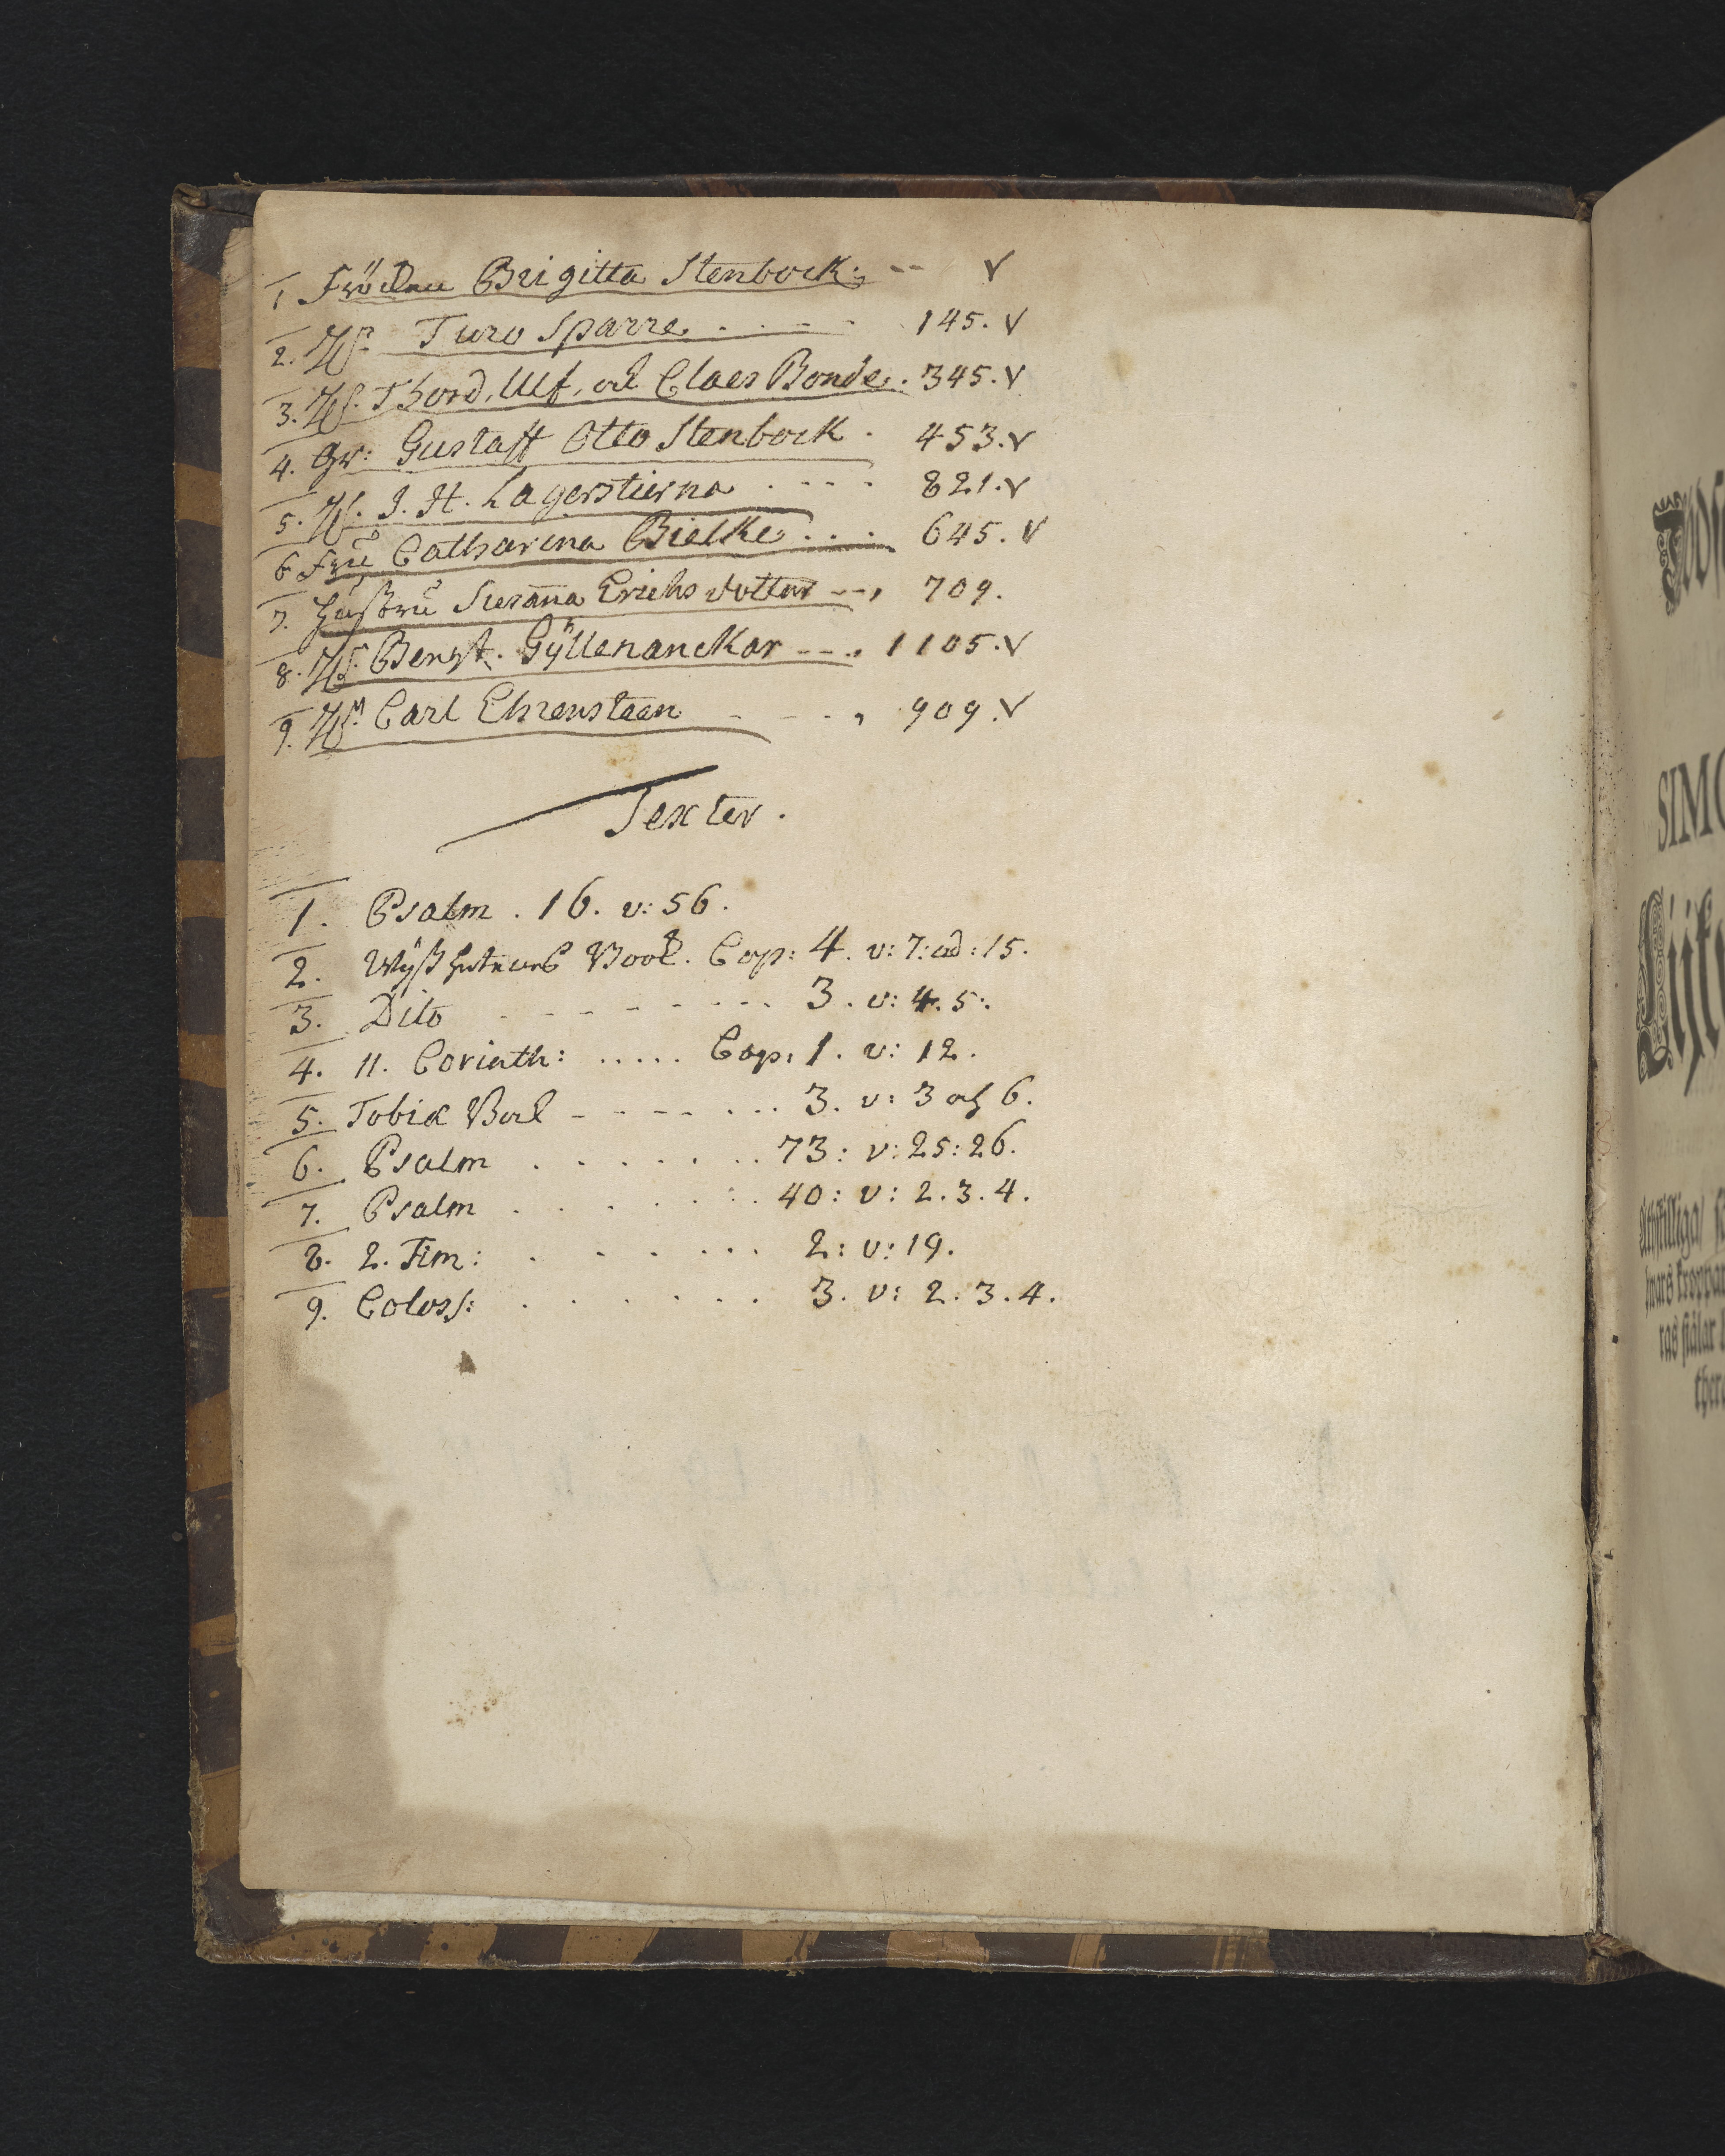 1 Fröiken Brigitta Stenbock. -- v
2. Hr Turo Sparre. . - - . 145. v
3. Hr. Thord, Ulf, och Claes Bonde. 345. v
4. Gr: Gustaff Otto Stenbock . 453. v
5. Hr. J. H. Lagerstierna . . . . 821. v
6 Fru Catharina Bielke . . . 645. v
7. Hustru Susana Erichs dotter --, 709.
8. Hr. Bengt. Gÿllenanckar --. 1105. v
9. Hr. Carl Ehrensteen - - -, 909. v
Texter.
1. Psalm. 16. v: 56.
2. Wijßhetenes Book. Cap: 4. v: 7: ad: 15.
3. Dito - - - - - - - - 3. v: 4. 5:.
4. 11. Corinth: . . . . . Cap: 1. v: 12.
5. Tobiæ Bok - - - - . . . 3. v: 3 och 6.
6. Psalm . . . . . . . 73: v: 25: 26.
7. Psalm . . . . . . . 40: v: 2. 3. 4.
8. 2. Tim: . . . . . . . 2: v: 19.
9. Coloss: . . . . . . 3. v: 2. 3. 4.
SIMO